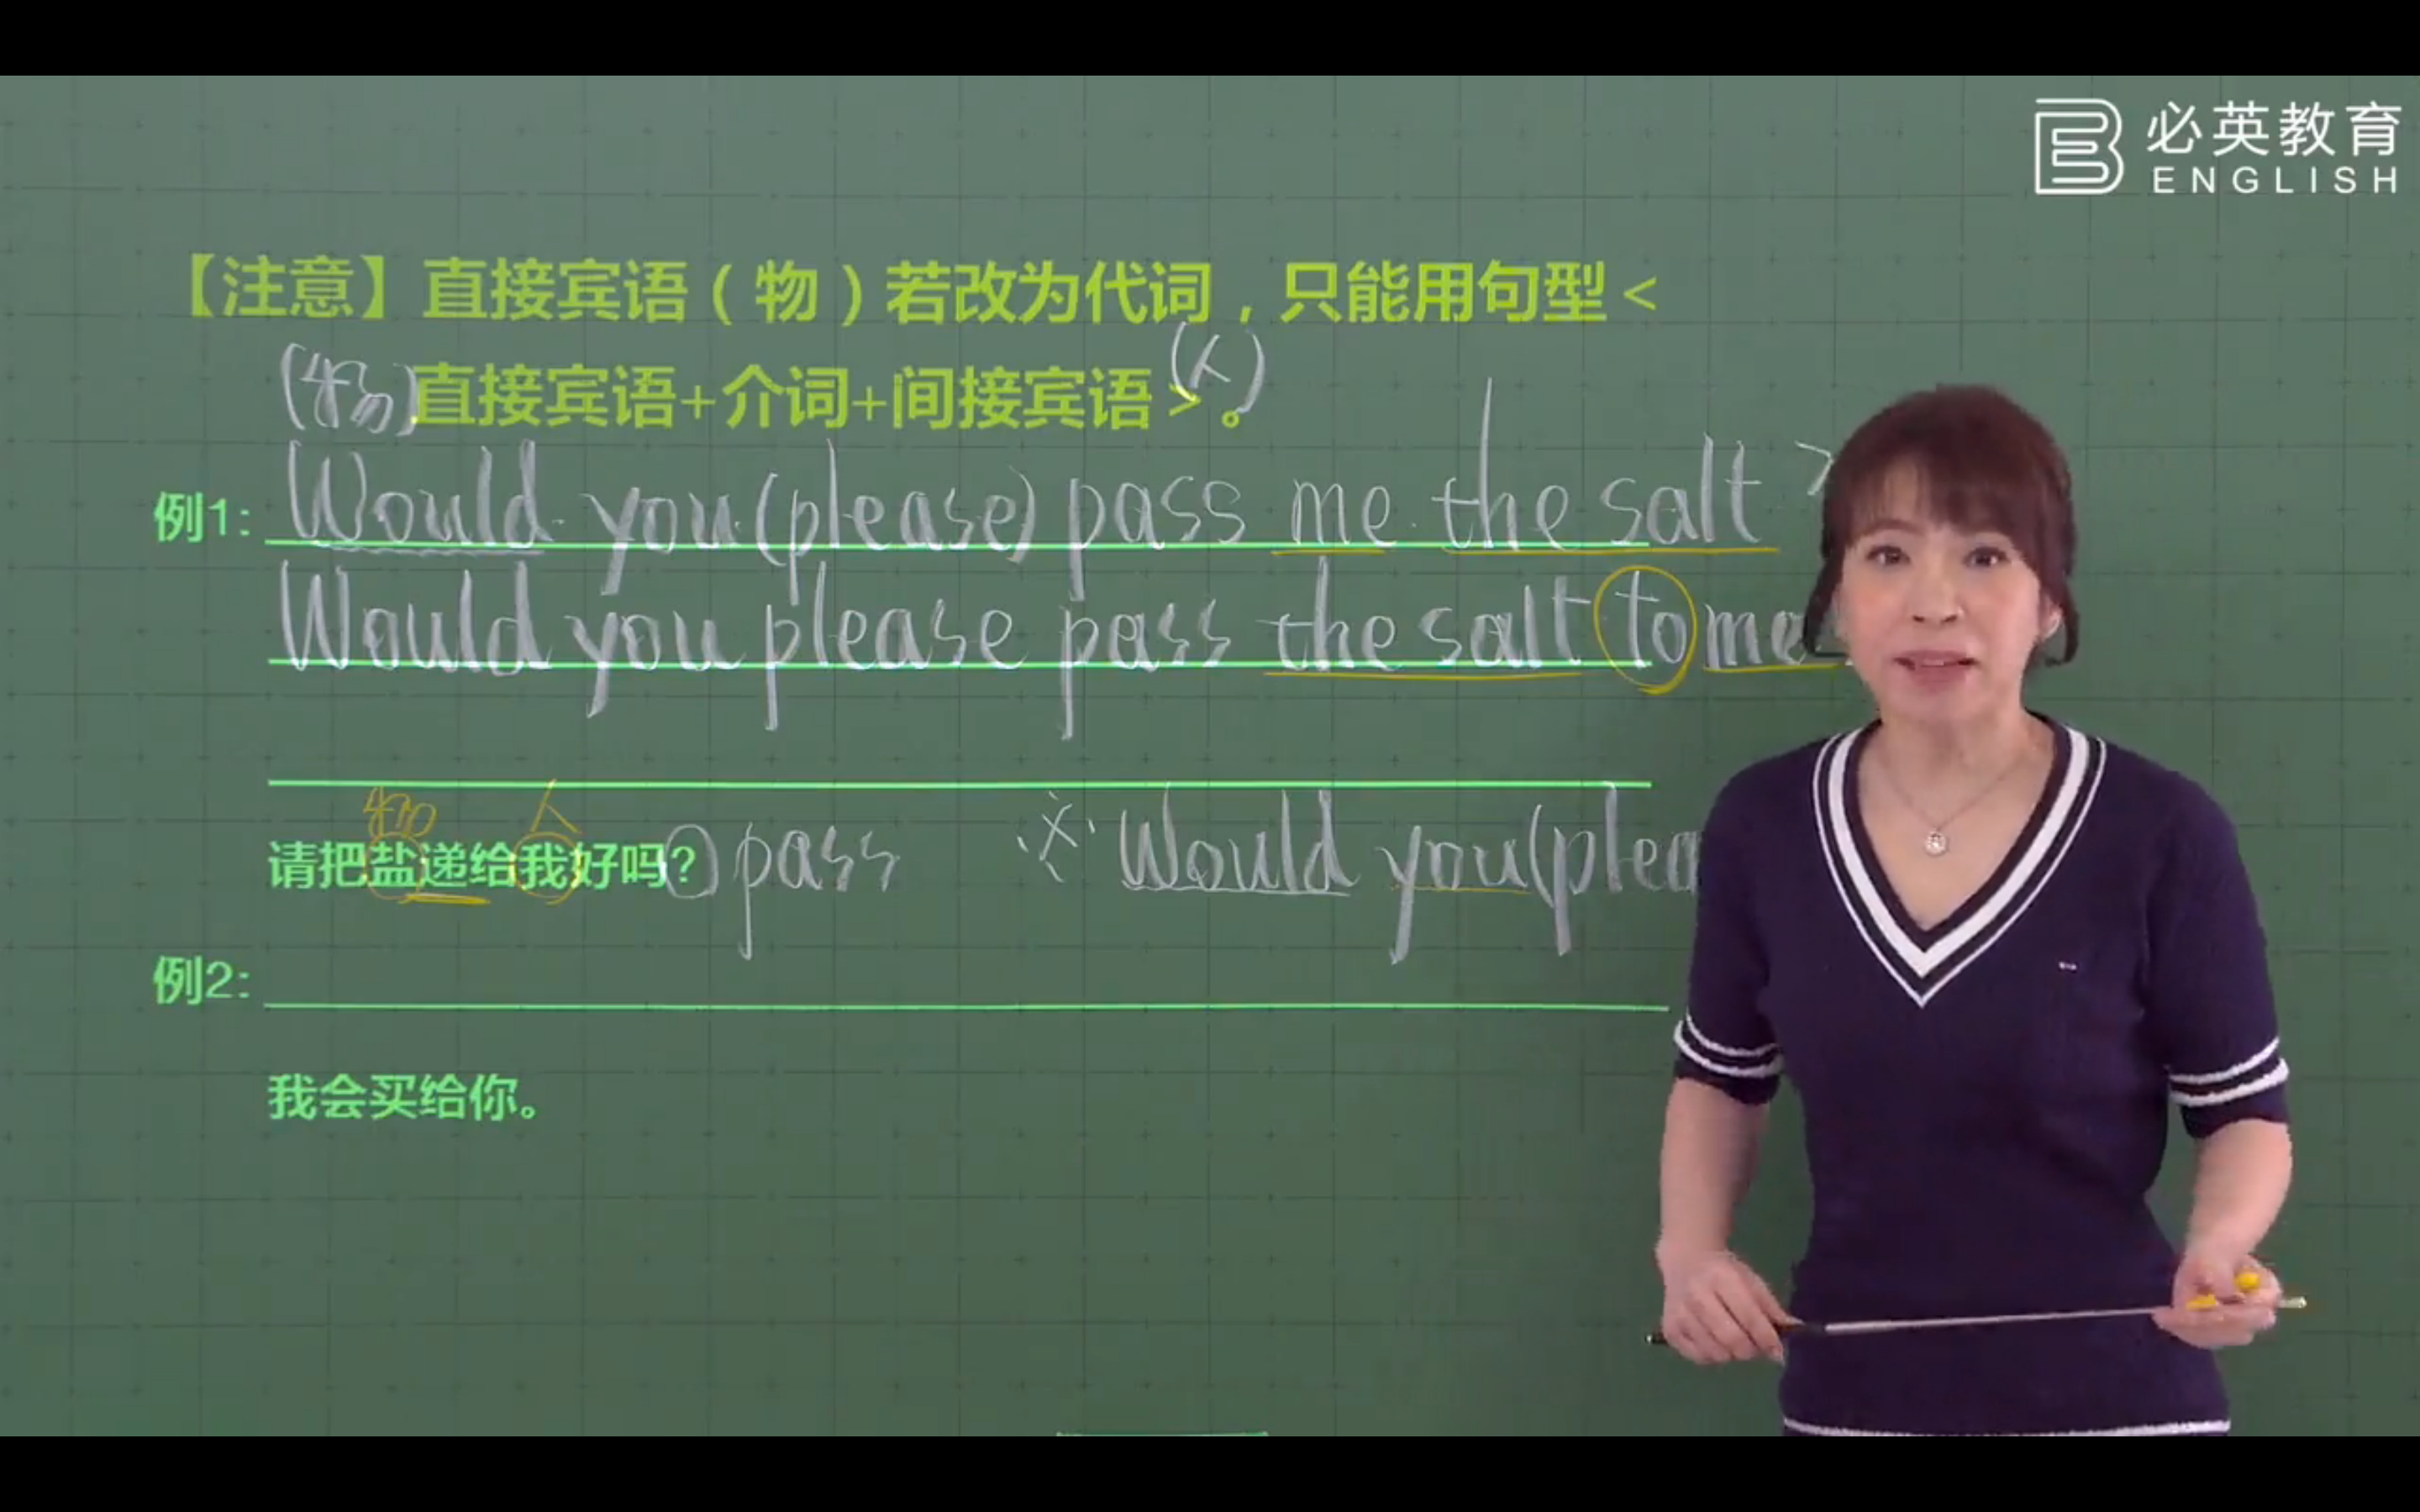 必英教育
ENGLISH
【注意】直接宾语(物)若改为代词,只能用句型<
(物)直接宾语+介词+间接宾语>。(人)
例1: Would you (please) pass me the salt ?
Would you please pass the salt to me
物 人
请把盐递给我好吗? pass ※ Would you (plea
例2:
我会买给你。